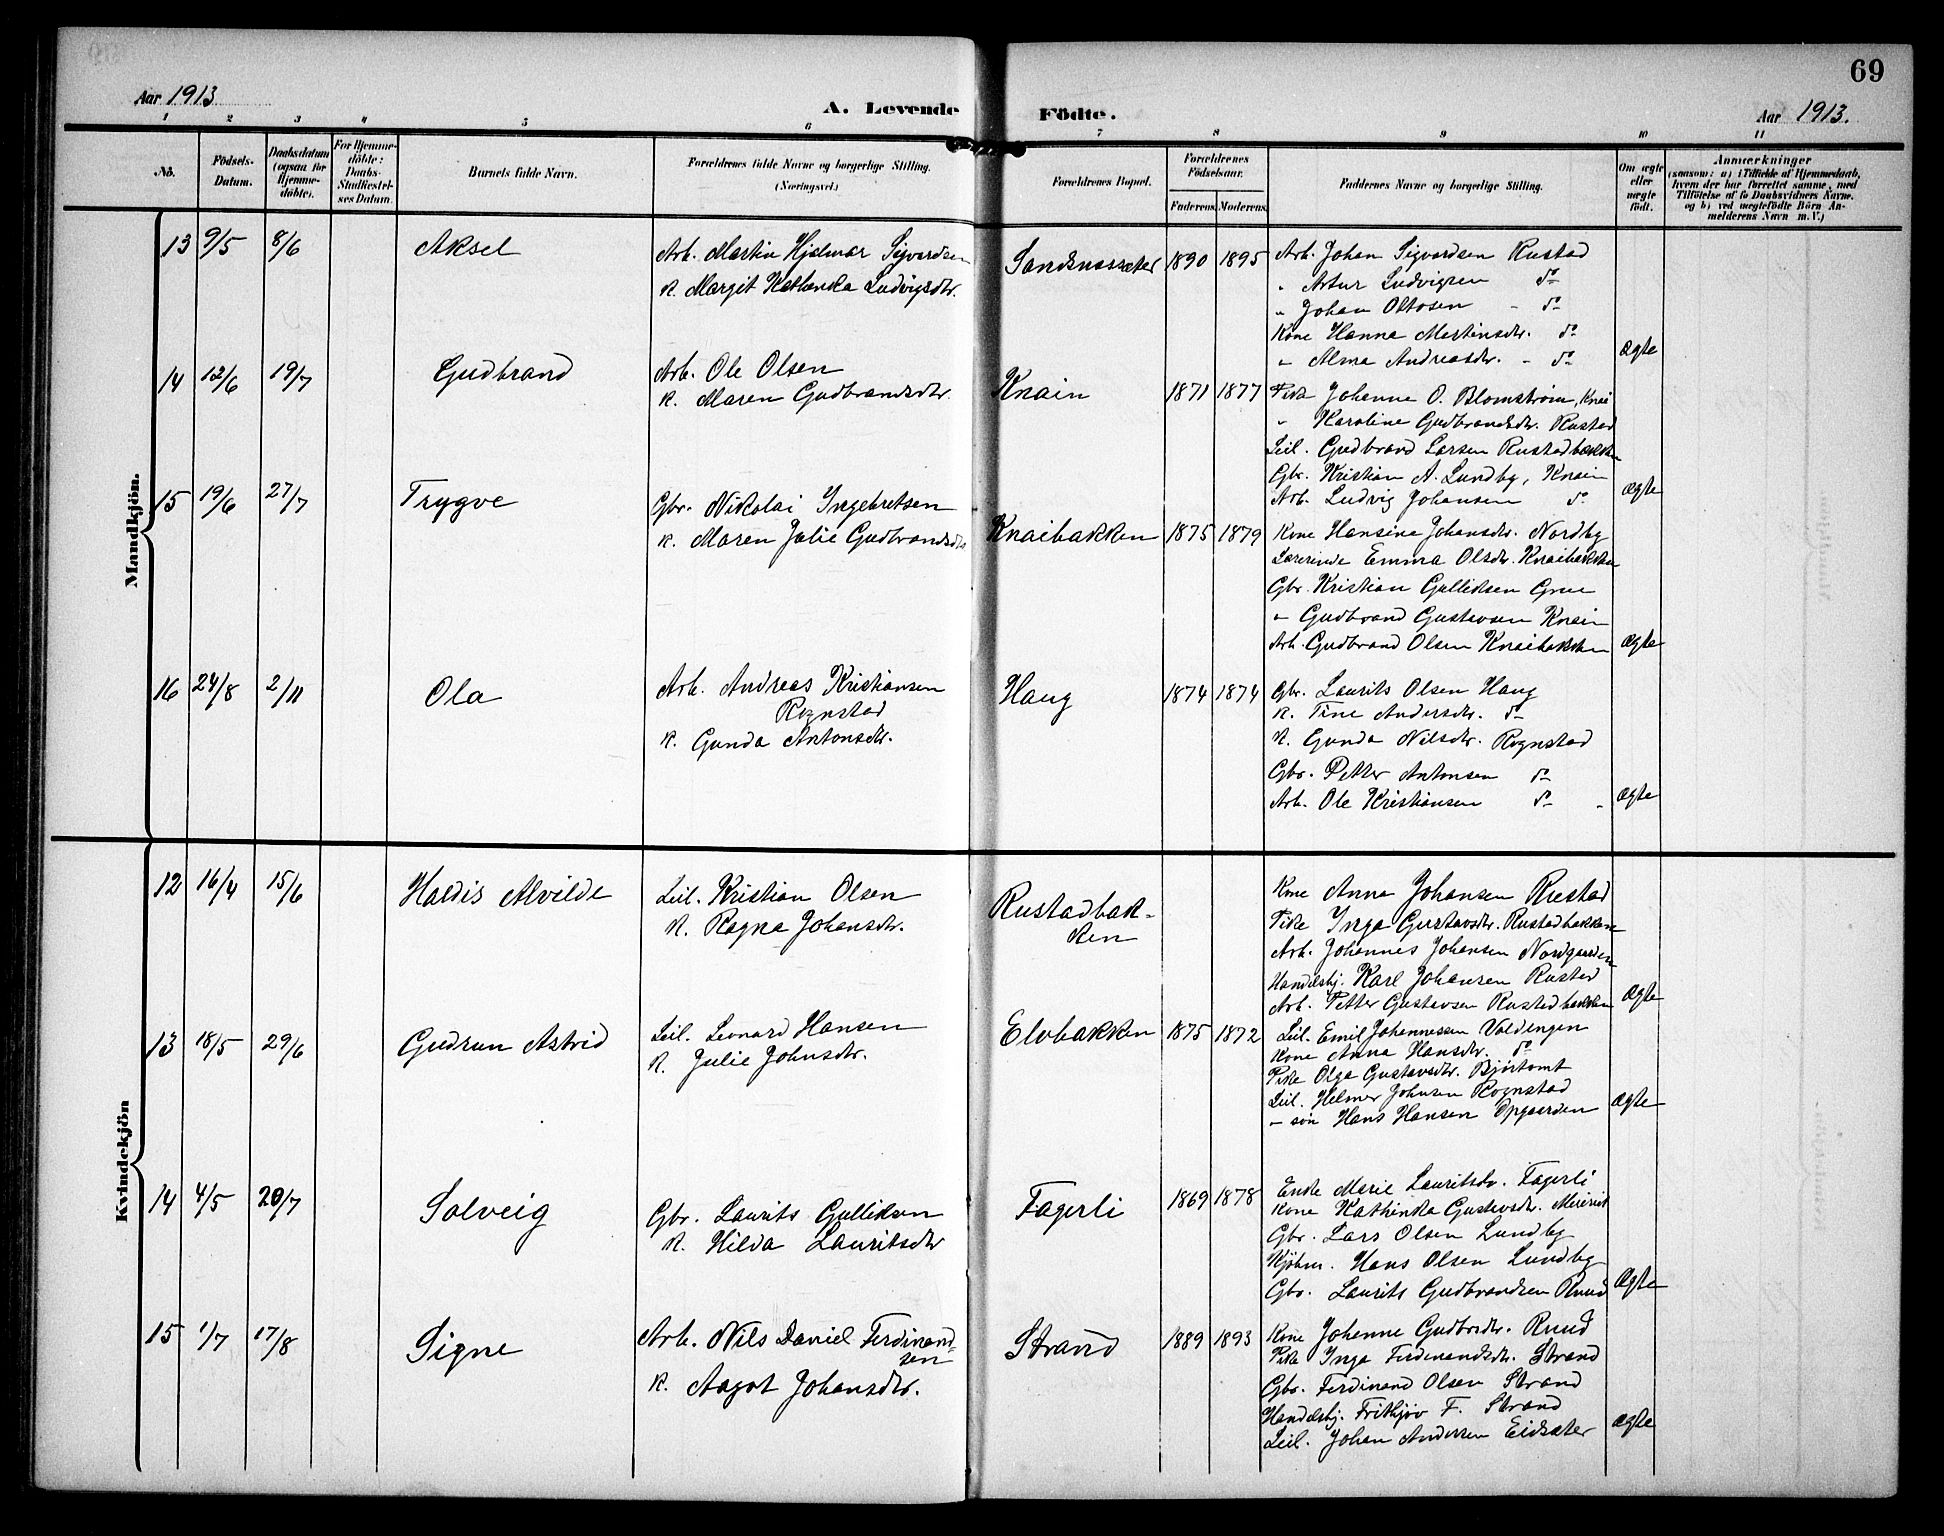 69
Aar 1913
A. Levende Födte.
Aar 1913.
1 2 3 4 5 6 7 8 9 10 11
No.
Födsels-
Datum.
Daabsdatum
(ogsaa for
Hjemme-
döbte).
For Hjemme-
döbte:
Daabs-
Stadfæstel-
ses Datum.
Barnets fulde Navn.
Forældrenes fulde Navne og borgerlige Stilling.
(Næringsvei.)
Forældrenes Bopæl.
Forældrenes
Födselsaar.
Faderens. Moderens.
Faddernes Navne og borgerlige Stilling.
Om ægte
eller
uægte
födt.
Anmærkninger
(saasom: a) i Tilfælde af Hjemmedaab,
hvem der har forrettet samme, med
Tilföielse af to Daabsvidners Navne,
og b) ved uægtefödte Börn An-
melderens Navn m. V.)
Mandkjön.
13 9/5 8/6 Aksel
Arb. Martin Hjalmar Sigvardsen
K. Margit Kathinka Ludvigsdtr.
Sandsnessæter 1890 1895
Arb. Johan Sigvardsen Rustad
" Artur Ludvigsen do
" Johan Ottosen - do
Kone Hanna Martinsdtr. do
" Alma Andreasdtr. - do
Ægte
14 12/6 19/7 Gudbrand
Arb. Ole Olsen
K. Maren Gudbrandsdtr.
Knain 1871 1877
Pike Johanne O. Blomstrøm, Knai
" Karoline Gudbrandsdtr. Rustad
Leil. Gudbrand Larsen Rustadbakken
Gbr. Kristian A. Lundby, Knain
Arb. Ludvig Johansen do
Ægte
15 19/6 27/7 Trygve
Gbr. Nikolai Ingebretsen
K. Maren Julie Gudbrandsdtr
Knaibakken 1875 1879
Kone Hansine Johansdtr. Nordby
Lærerinde Emma Olsdtr. Knaibakken
Gbr. Kristian Gulliksen Grue
" Gudbrand Gustavsen Knain
Arb. Gudbrand Olsen Knaibakken
Ægte
16 24/8 2/11 Ola
Arb. Andreas Kristiansen
Rognstad
K. Gunda Antonsdtr.
Haug 1874 1874
Gbr. Laurits Olsen Haug
K. Tine Andersdtr. do
K. Gunda Nilsdtr. Rognstad
Gbr. Petter Antonsen do
Arb. Ole Kristiansen do
Ægte
Kvindekjön
12 16/4 15/6 Haldis Alvilde
Leil. Kristian Olsen
K. Ragna Johansdtr.
Rustadbak-
ken
Kone Anna Johansen Rustad
Pike Inga Gustavsdtr. Rustadbakken
Arb. Johannes Johansen Nordgaarden
Handelsbj. Karl Johansen Rustad
Arb. Petter Gustavsen Rustadbakken
Ægte
13 18/5 29/6 Gudrun Astrid
Leil. Leonard Hansen
K. Julie Johnsdtr.
Elvbakken 1875 1872
Leil. Emil Johannessen Valdingen
Kone Anna Hansdtr. do
Pike Olga Gustavsdtr. Bjørtomt
Leil. Helmer Johnsen Rognstad
- søn Hans Hansen Opgaarden
Ægte
14 4/5 20/7 Solveig
Gbr. Laurits Gulliksen
K. Hilda Lauritsdtr
Fagerli 1869 1878
Enke Marie Lauritsdtr. Fagerli
Kone Kathinka Gustavsdtr. Meieriet
Gbr. Lars Olsen Lundby
Kjøbm. Hans Olsen Lundby
Gbr. Laurits Gudbrandsen Ruud
Ægte
15 1/7 17/8 Signe
Arb. Nils Daniel Ferdinand-
sen
K. Aagot Johansdtr.
Strand 1889 1893
Kone Johanne Gudbrdtr. Ruud
Pike Inga Ferdinandsdtr. Strand
Gbr. Ferdinand Olsen Strand
Handelsbj. Frithjov F. Strand
Leil. Johan Andersen Eidsæter
Ægte